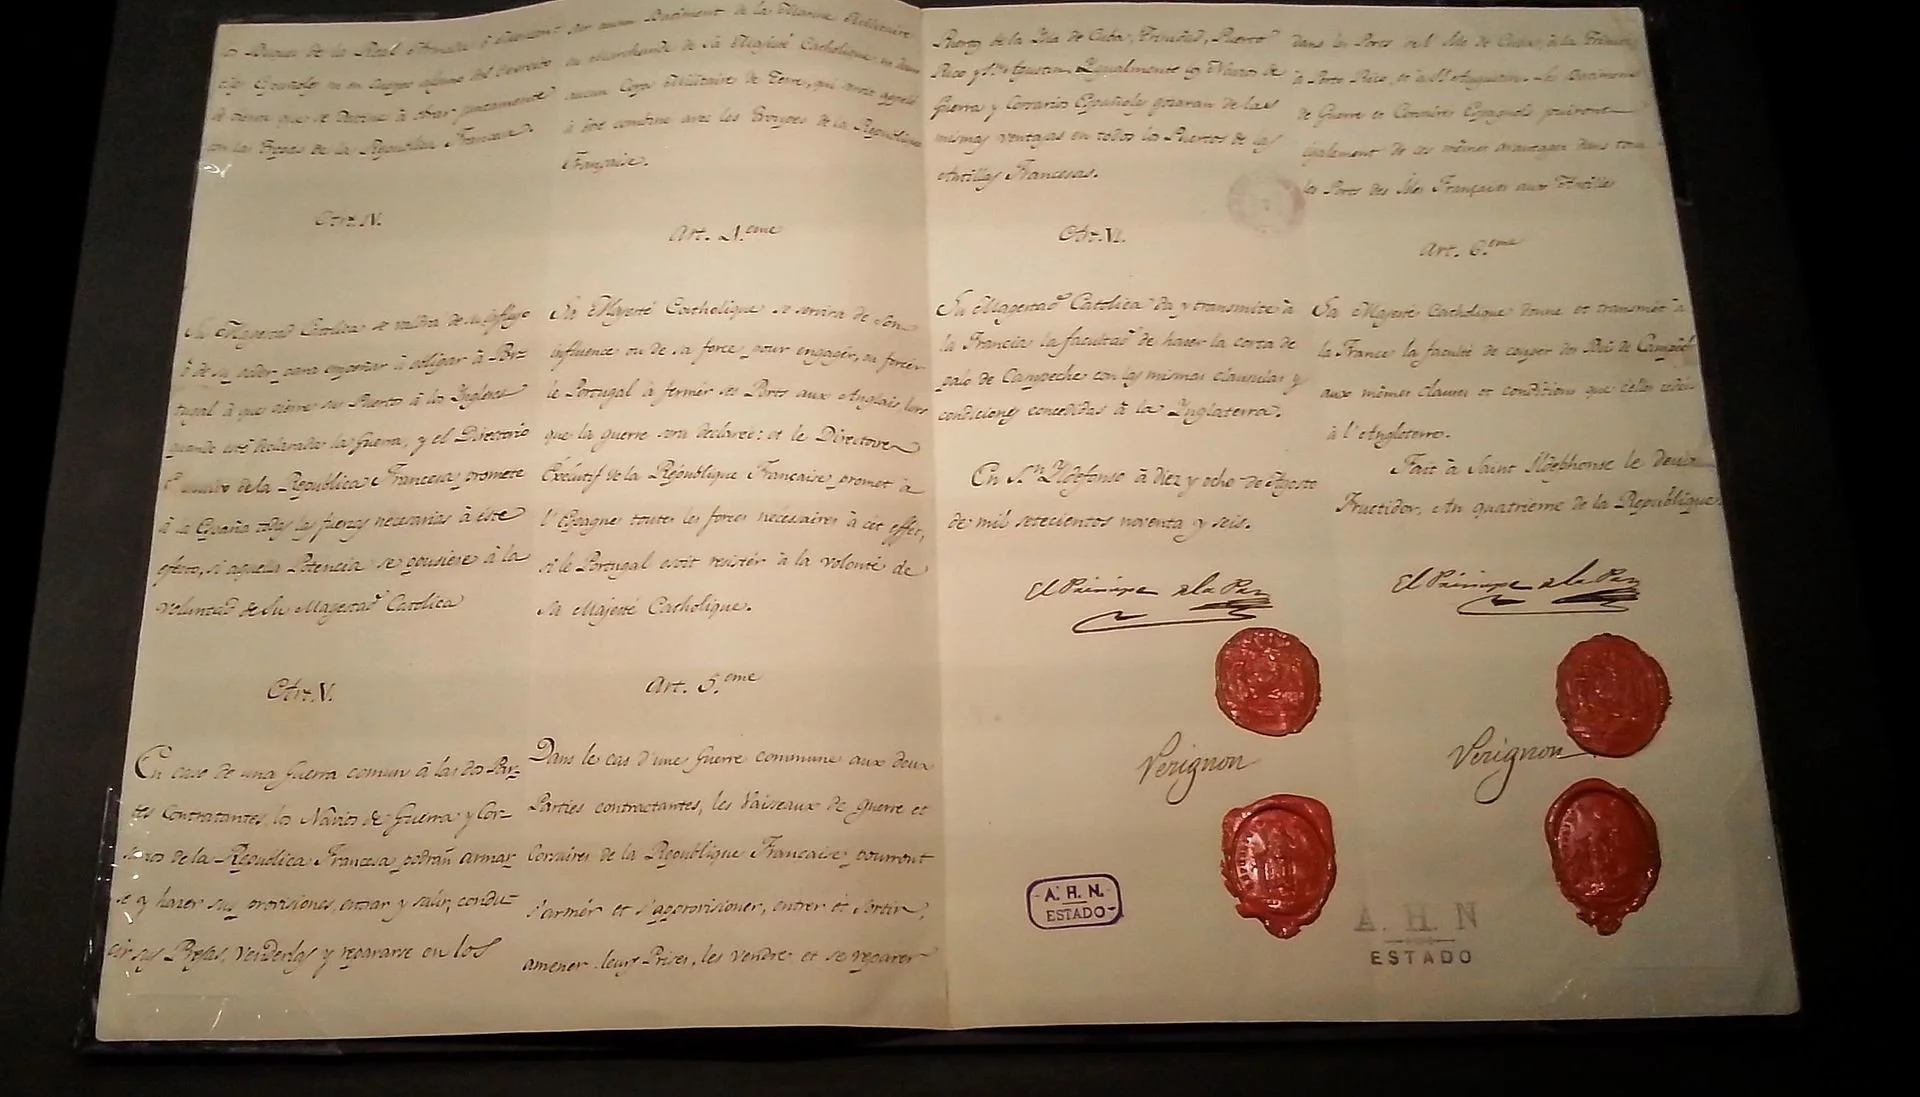 los Buques de la Real Armada ó
tes Españoles ni en Cuerpo alguno del Exercito
de tierra que se destine à obrar juntamente
con las Tropas de la Republica Francesa.
Art. IV.
Su Magestad Catolica se valdrá de su influjo
ò de su poder para empeñar ò obligar à Por=
tugal à que cierre sus Puertos à los Ingleses
quando esté declarada la Guerra, y el Directorio
de la Republica Francesa promete
à la España todas las fuerzas necesarias à este
efecto, si aquella Potencia se opusiere à la
voluntad de Su Magestad Catolica
Art. V.
En caso de una Guerra comun à las dos Par=
tes Contratantes, los Navios de Guerra y Cor=
sarios de la Republica Francesa podrán armar
se y hacer sus provisiones, entrar y salir, condu=
cir sus Presas, venderlas y repararse en los
sur aucun Batiment de la Marine Militaire
ou Marchande de Sa Majesté Catholique, ni dans
aucun Corps Militaire de Terre, qui seroit appellé
à être combiné avec les Troupes de la Republique
Française.
Art. 4.eme
Sa Majesté Catholique se servira de son
influence ou de sa force pour engager, ou forcer
le Portugal à fermer ses Ports aux Anglais, lors
que la guerre sera declareé: et le Directoire
Exécutif de la République Française promet à
l'Espagne toutes les forces nécessaires à cet effet,
si le Portugal osoit resister à la volonté de
Sa Majesté Catholique.
Art. 5.eme
Dans le cas d'une Guerre commune aux deux
Parties contractantes, les Vaisseaux de guerre et
Corsaires de la Republique Française pourront
s'armer et s'approvisioner, entrer et sortir,
amener leurs Prises, les vendre et se reparer
Puertos de la Isla de Cuba, Trinidad, Puerto
Rico y Sn. Agustin. Igualmente los Navios de
Guerra y Corsarios Españoles gozaran de las
mismas ventajas en todos los Puertos de las
Antillas Francesas.
Art. VI.
Su Magestad Catolica da y transmite à
la Francia la facultad de hacer la corta de
palo de Campeche con las mismas clausulas y
condiciones concedidas à la Ynglaterra.
En Sn. Yldefonso à diez y ocho de Agosto
de mil setecientos noventa y seis.
El Principe de la Paz
Perignon
A. H. N.
ESTADO
dans les Ports de l'Isle de Cuba, à la Trinité,
à Porto Rico, et à St. Augustin. Les Batimens
de Guerre et Corsaires Espagnols jouiront
également de ces mêmes avantages dans tous
les Ports des Isles Françaises aux Antilles
Art. 6.eme
Sa Majesté Catholique donne et transmet à
la France la faculté de couper des Bois de Campêche
aux mêmes clauses et conditions que celles cedées
à l'Angleterre.
Fait à Saint Ildephonse le deux
Fructidor, An quatrieme de la Republique.
El Principe de la Paz
Perignon
A. H. N
ESTADO